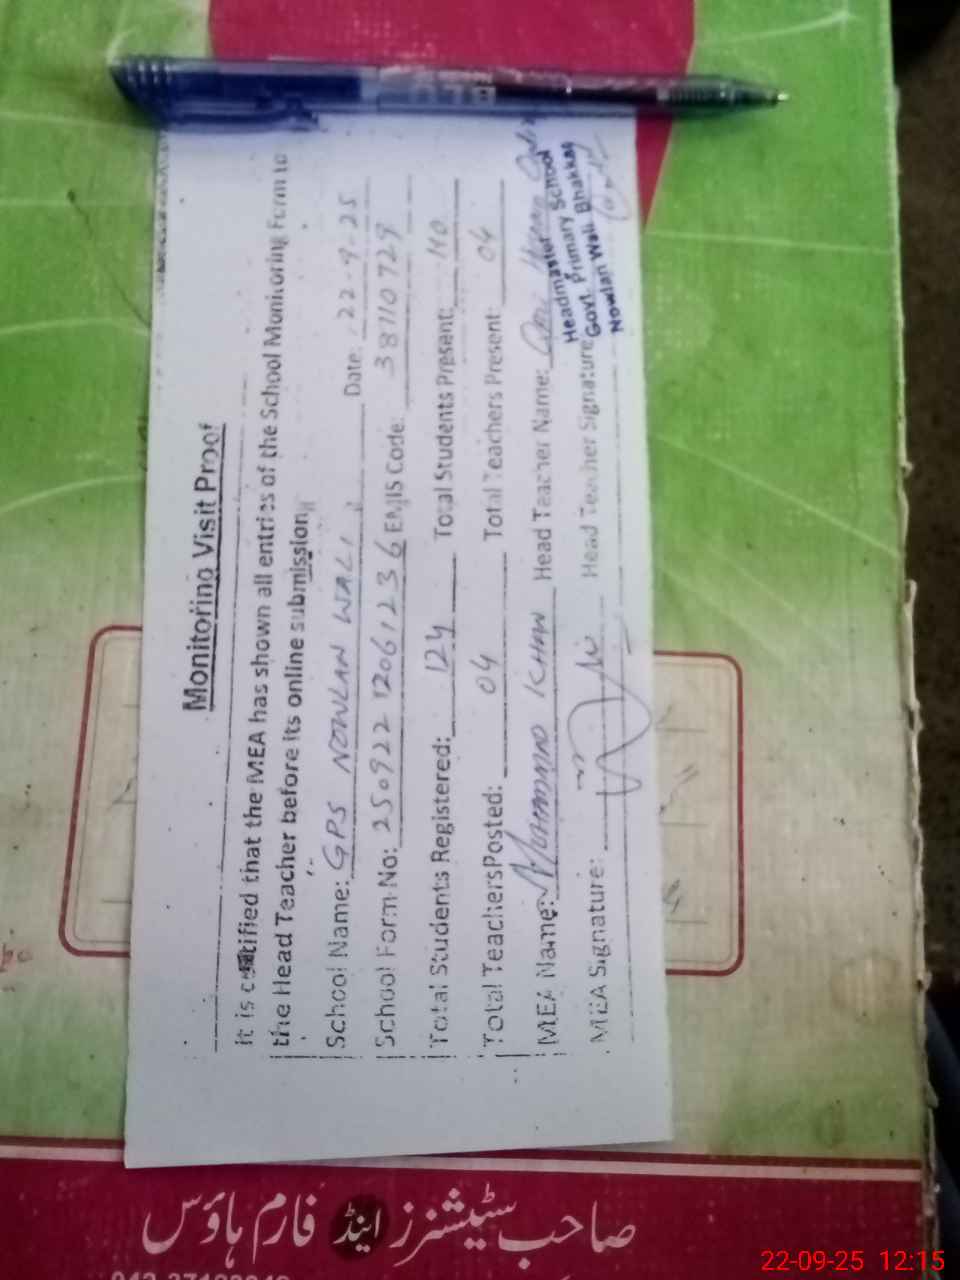 Monitoring Visit Proof
It is certified that the MEA has shown all entries of the School Monitoring Form to
the Head Teacher before its online submission
School Name: GPS NOWLAN WALI Date: 22-9-25
School Form No: 250922 12061236 EMIS Code: 38110729
Total Students Registered: 124 Total Students Present: 110
Total Teachers Posted: 04 Total Teachers Present: 04
MEA Name: MUHAMMAD KHAN Head Teacher Name:
MEA Signature: Head Teacher Signature
Headmaster School
Govt. Primary Bhakkar
Nowlan Wali
صاحب سٹیشنرز اینڈ فارم ہاؤس
22-09-25 12:15